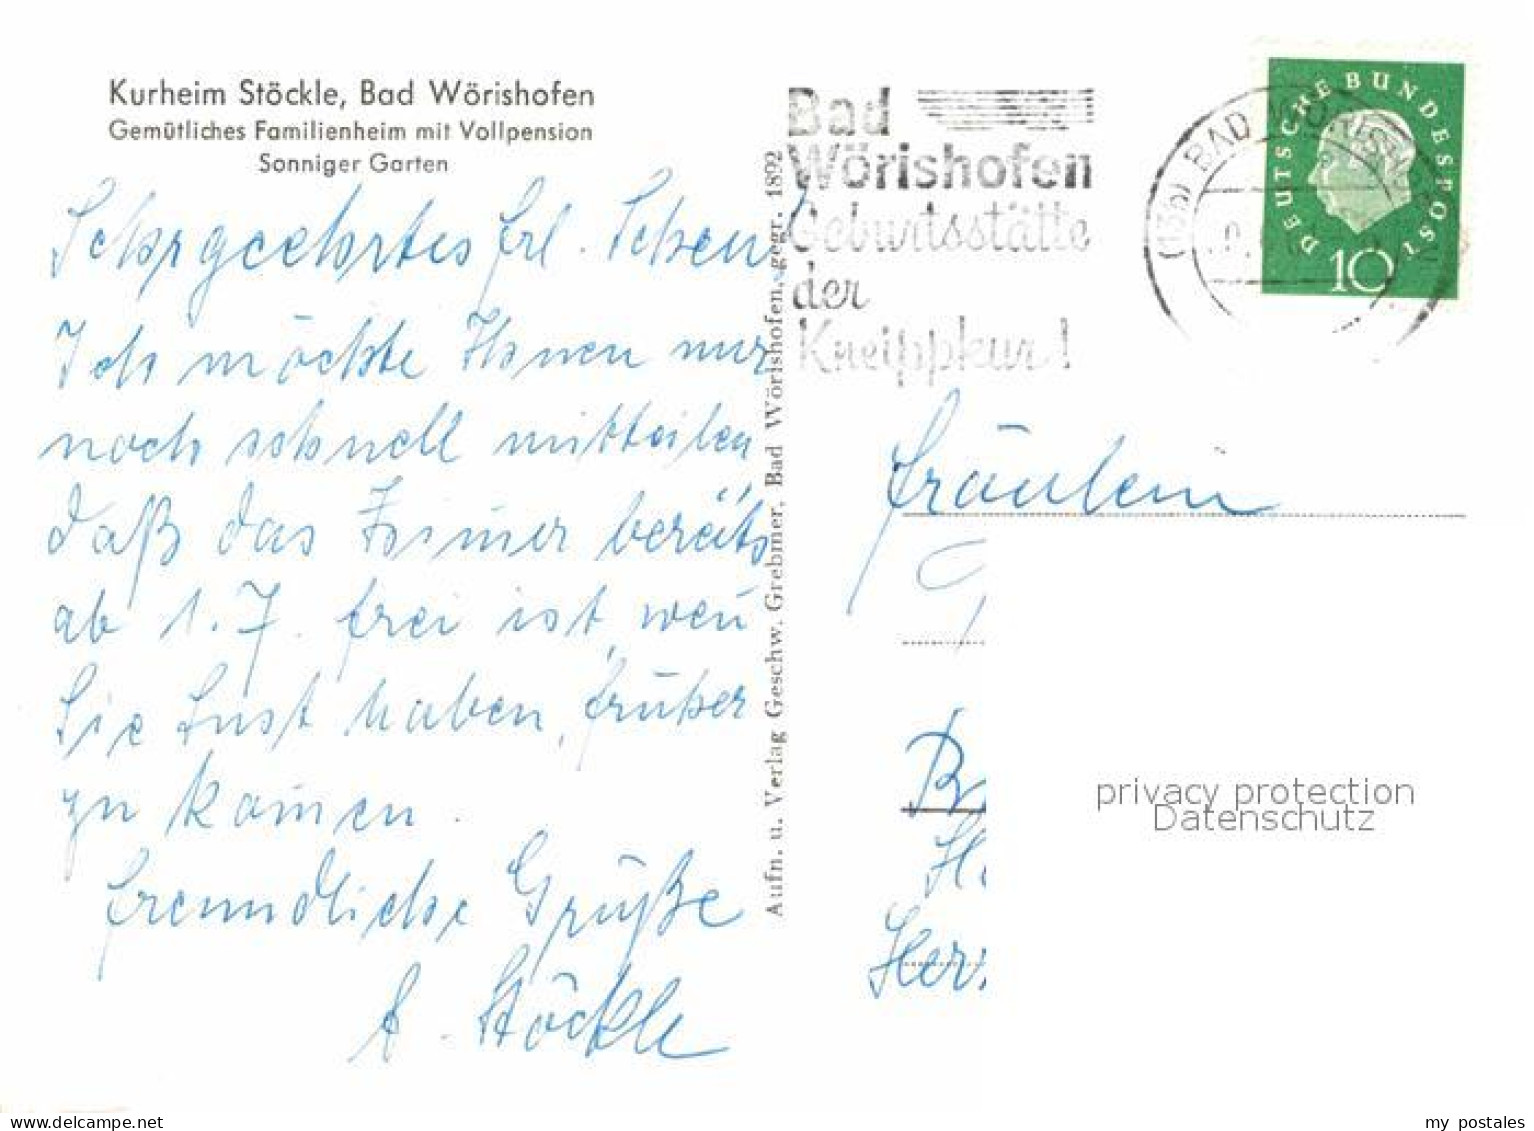 Kurheim Stöckle, Bad Wörishofen
Gemütliches Familienheim mit Vollpension
Sonniger Garten
Sehr geehrtes Frl.
Ich möchte Ihnen nur
noch schnell mitteilen
daß das Zim̅er bereits
ab 1.7. frei ist, wen̅
Sie Lust haben, früher
zu kom̅en.
Freundliche Grüße
A. Stöckle
Aufn. u. Verlag Geschw. Grebmer, Bad Wörishofen, gegr. 1892
Bad
Wörishofen
Geburtsstätte
der
Kneippkur!
(13b) BAD WÖRISHOFEN
DEUTSCHE BUNDESPOST
10
Fräulein
privacy protection
Datenschutz
my postales